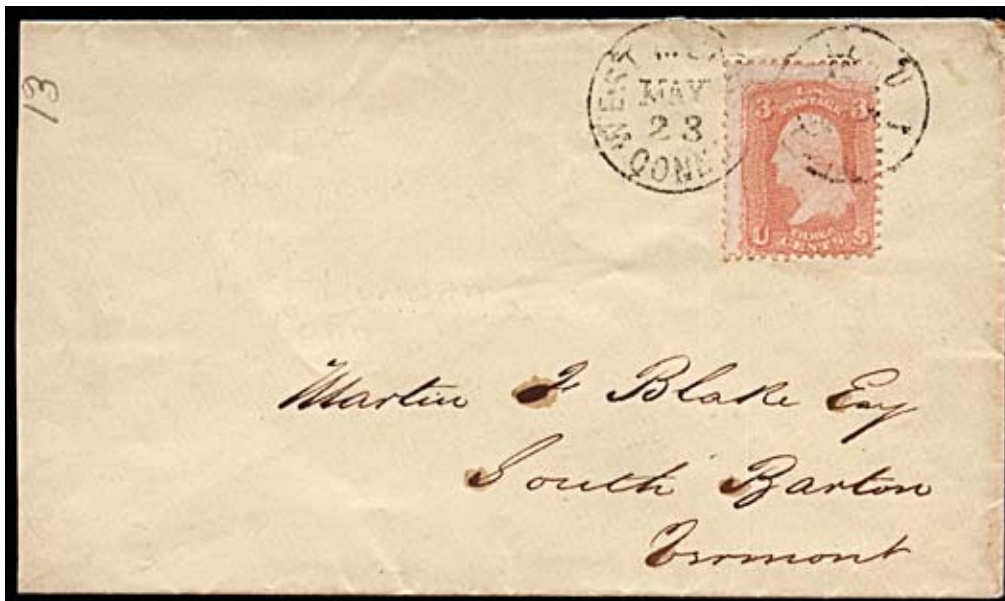 13
WEST
MAY
23
CONN
3 3
U.S.
POSTAGE
U S
THREE
CENTS
Martin F Blake Esq
South Barton
Vermont